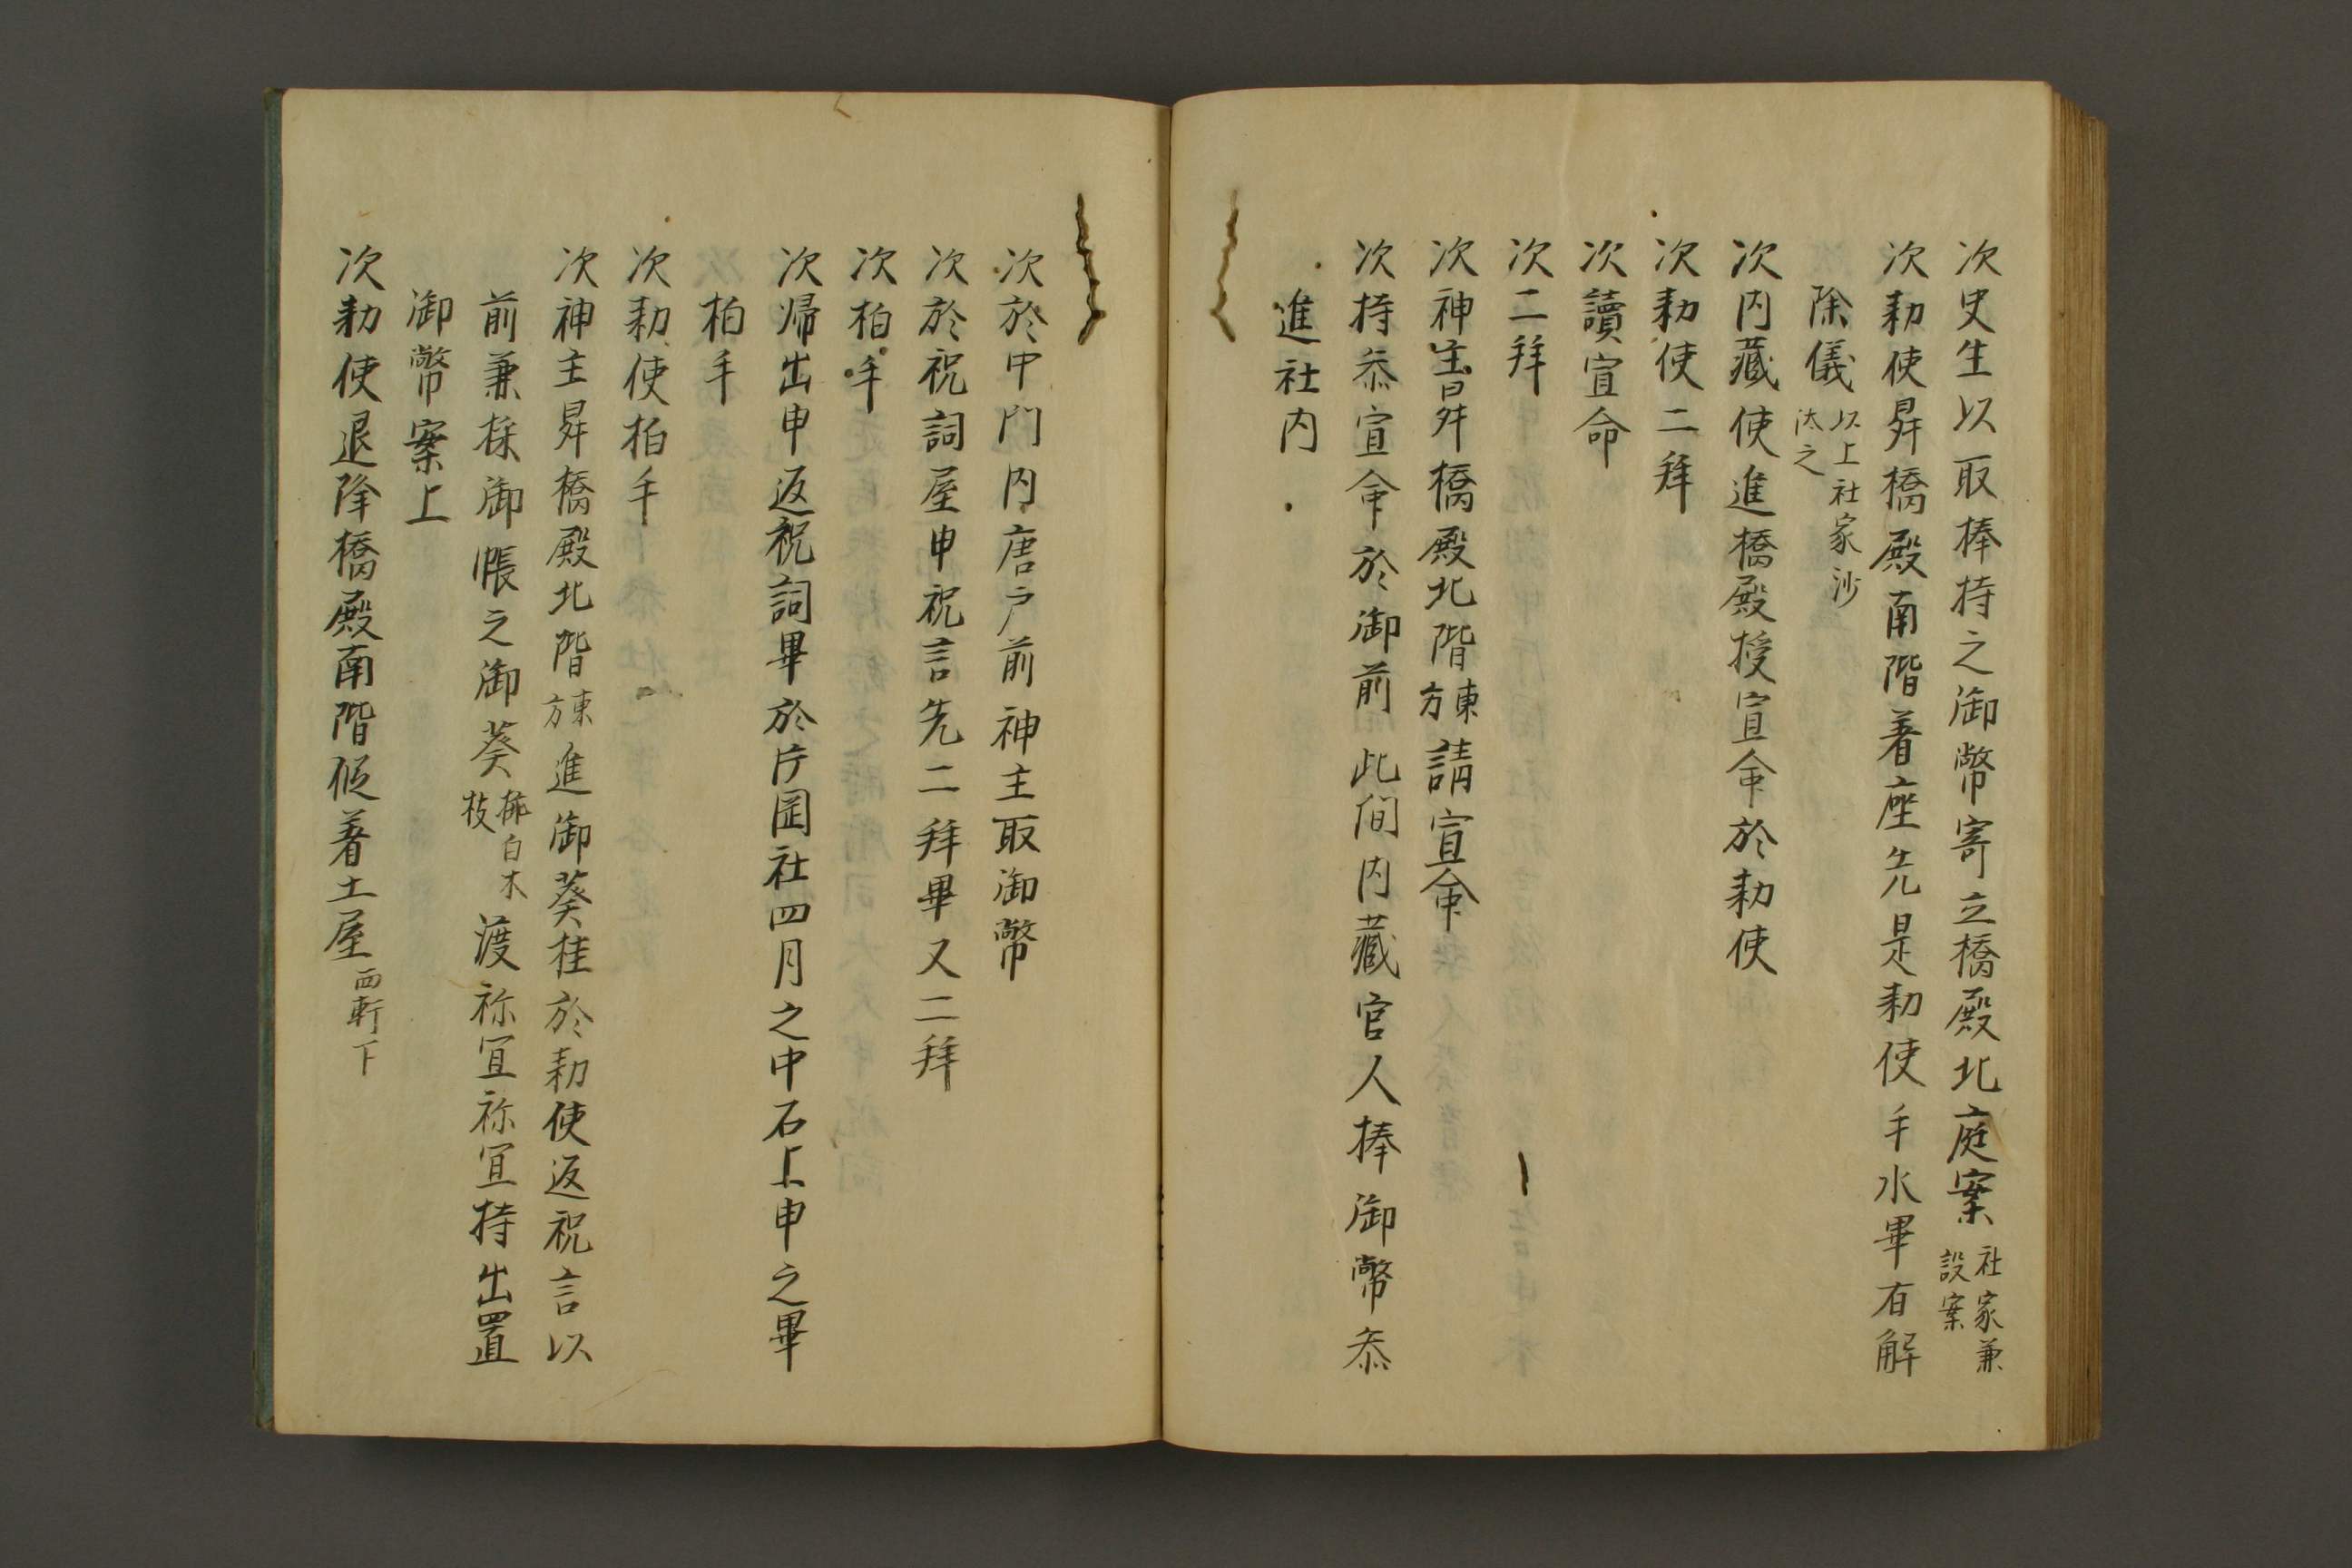 次史生以取捧持之御幣寄立橋殿北庭案社家兼設案
次勅使昇橋殿南階着座先是勅使手水畢有解
除儀以上社家沙汰之
次内藏使進橋殿授宣命於勅使
次勅使二拜
次讀宣命
次二拜
次神主昇橋殿北階東方請宣命
次持参宣命於御前此間内藏官人捧御幣参
進社内
次於中門内唐戸前神主取御幣
次於祝詞屋申祝言先二拜畢又二拜
次柏手
次帰出申返祝詞畢於片岡社四月之中石上申之畢
柏手
次勅使柏手
次神主昇橋殿北階東方進御葵桂於勅使返祝言以
前兼採御帳之御葵白木枝渡祢宜祢宜持出置
御幣案上
次勅使退降橋殿南階仮着土屋西軒下